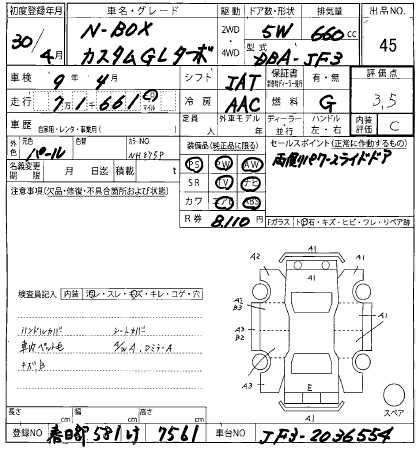 初度登録年月 車名・グレード 駆動 ドア数・形状 排気量 出品NO.
30/4月 N-BOX カスタムGLターボ 2WD 4WD 5W 660cc 45
型式 DBA-JF3
車検 9年4月 シフト IAT 保証書 有・無 評価点
走行 7万1千661 マイル 冷房 AAC 燃料 G 3.5
車歴 自家用・レンタ・事業用( ) 定員 人 外車年式 年 ディーラー・並行 ハンドル 左・右 内装評価 C
外色 元色 パール 色替 カラーNO NH875P 装備品(純正品に限る) セールスポイント(正常に作動するもの)
PS PW AW 両側パワースライドドア
名義変更期限 月 日 積載 t SR TV ナビ
注意事項(欠品・修復・不具合箇所および改造) カワ エアB ABS
R券 8,110円 Fガラス トビ石・キズ・ヒビ・ワレ・リペア跡
検査員記入 内装 汚レ・スレ・キズ・キレ・コゲ・穴
ハンドルカバー シートカバー
車内ペット毛
キズB
A1
A2 A1
A1 B3
A3 B2 A1
A2
A3 A3
E
A1
スペア
長さ cm 幅 cm 高さ cm
登録NO 春日部 581 け 7561 車台NO JF3-2036554